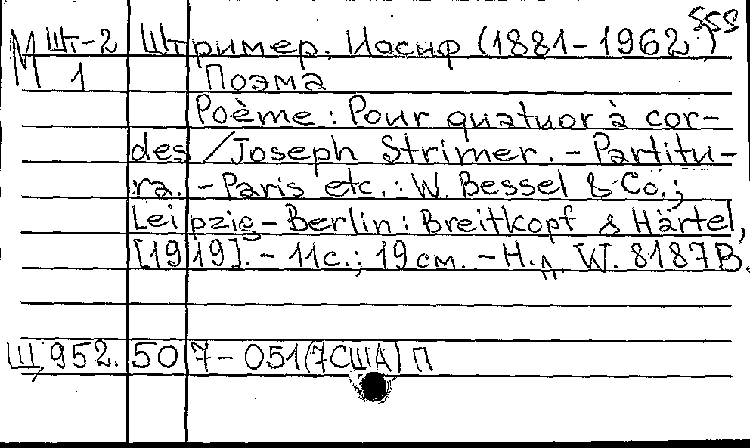 555
М Шт-2 Штример. Иосиф (1881-1962.)
1 Поэма
Poème : Pour quatuor à cor-
des / Joseph Strimer. - Partitu-
ra. - Paris etc. : W. Bessel & Co.;
Leipzig-Berlin : Breitkopf & Härtel,
[1919]. - 11с.; 19см. - Н.п. W. 8187B.
Щ 952.507-051(7США) П